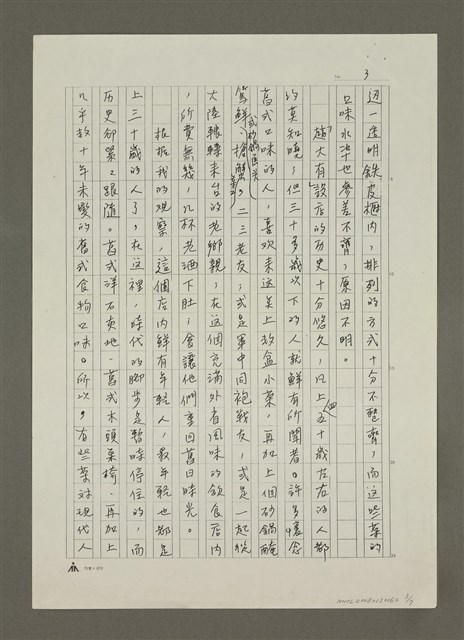 3
迎一透明鉄皮櫃内，排列的方式十分不整齊，而这些菜的
口味水準也參差不齊，原因不明。
趙大有該店的历史十分悠久，凡上四五十歲左右的人都
的莫知曉，但三十多歲以下的人就鮮有所聞者。許多懷念
舊式口味的人，喜欢来这点上数盒小菜，再加上個砂鍋醃
篤鮮、或砂鍋魚头、搶蟹。二三老友，或是軍中同袍戰友，或是一起從
大陸輾轉来台的老鄉親，在这個充滿外省風味的飲食店内
，所費無幾，几杯老酒下肚，會讓他們重回舊日時光。
根据我的观察，這個店内鮮有年輕人，最年輕也都是
上三十歲的人了，在这裡，時代的腳步是暫時停住的，而
历史卻累累跟隨。舊式洋石灰地、舊式木頭桌椅、再加上
几乎数十年未變的舊式食物口味。所以，有些菜对現代人